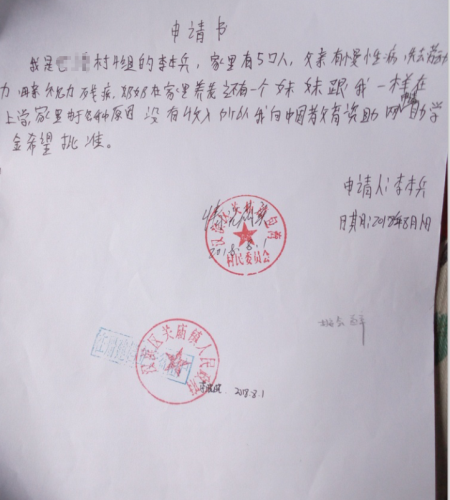 申请书
我是 村4组的李本兵，家里有5口人，父亲有慢性病，失去劳动
力 母亲 智力残疾，奶奶在家里养老还有一个妹妹跟我一样在
上学家里由于各种原因没有收入所以我向中国教育资助网 助学
金希望批准。
申请人：李本兵
日期：2018年8月1日
情况属实
2018.8.1
村民委员会
汉滨区关庙镇人民政府
2018.8.1